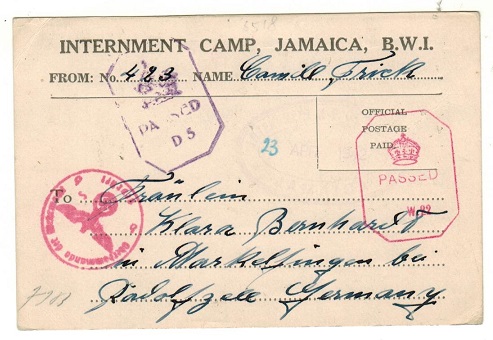 INTERNMENT CAMP, JAMAICA, B.W.I.
FROM: No. 423 NAME Camill Frick
PASSED
D 5
OFFICIAL
POSTAGE
PAID
23
PASSED
To Fräulein
Klara Bernhardt
in Markelfingen bei
Radolfzell Germany